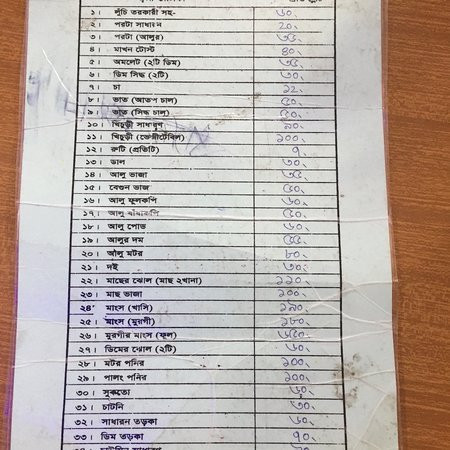 ১। লুচি তরকারী সহ- ৬০্
২। পরটা সাধারন ২০্
৩। পরটা (আলুর) ৩৫্
৪। মাখন টোস্ট ৪০্
৫। অমলেট (২টি ডিম) ৩৫্
৬। ডিম সিদ্ধ (২টি) ৩০্
৭। চা ২২্
৮। ভাত (আতপ চাল) ৫০্
৯। ভাত (সিদ্ধ চাল) ৫০্
১০। খিচুড়ী সাধারণ ৯০্
১১। খিচুড়ী (ভেজীটেবিল) ১০০্
১২। রুটি (প্রতিটি) ৭্
১৩। ডাল ৩০্
১৪। আলু ভাজা ৩৫্
১৫। বেগুন ভাজ ৫০্
১৬। আলু ফুলকপি ৬০্
১৭। আলু বাঁধাকপি ৫০্
১৮। আলু পোস্ত ৬০্
১৯। আলুর দম ৫৫্
২০। আলু মটর ৮০্
২১। দই ৩০্
২২। মাছের ঝোল (মাছ ২খানা) ২২০্
২৩। মাছ ভাজা ২০০্
২৪ মাংস (খাসি) ২৯০্
২৫। মাংস (মুরগী) ২৮০্
২৬। মুরগীর মাংস (ফুল) ৬৫০্
২৭। ডিমের ঝোল (২টি) ৬০্
২৮। মটর পনির ২০০্
২৯। পালং পনির ২০০্
৩০। সুকতো ৬০্
৩১। চাটনি ৩০্
৩২। সাধারন তড়কা ৬০্
৩৩। ডিম তড়কা ৭০্